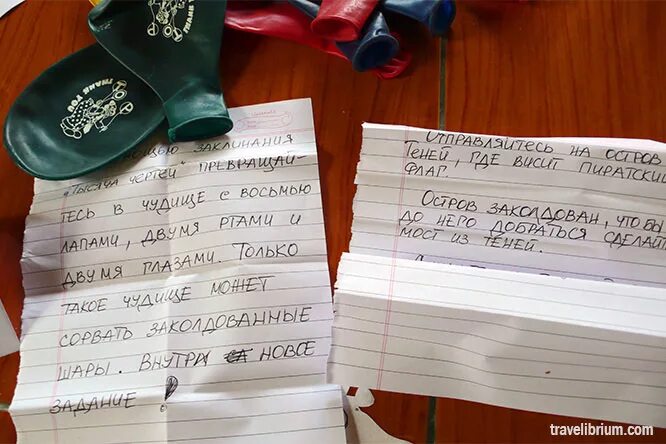 THANK YOU
THANK YOU
ЗАКЛИНАНИЯ
"ТЫСЯЧА ЧЕРТЕЙ" ПРЕВРАЩАЙ-
ТЕСЬ В ЧУДИЩЕ С ВОСЬМЬЮ
ЛАПАМИ, ДВУМЯ РТАМИ И
ДВУМЯ ГЛАЗАМИ. ТОЛЬКО
ТАКОЕ ЧУДИЩЕ МОЖЕТ
СОРВАТЬ ЗАКОЛДОВАННЫЕ
ШАРЫ. ВНУТРИ НОВОЕ
ЗАДАНИЕ!
ОТПРАВЛЯЙТЕСЬ НА ОСТРОВ
ТЕНЕЙ, ГДЕ ВИСИТ ПИРАТСКИ
ФЛАГ.
ОСТРОВ ЗАКОЛДОВАН, ЧТО БЫ
ДО НЕГО ДОБРАТЬСЯ СДЕЛАЙ
МОСТ ИЗ ТЕНЕЙ.
travelibrium.com